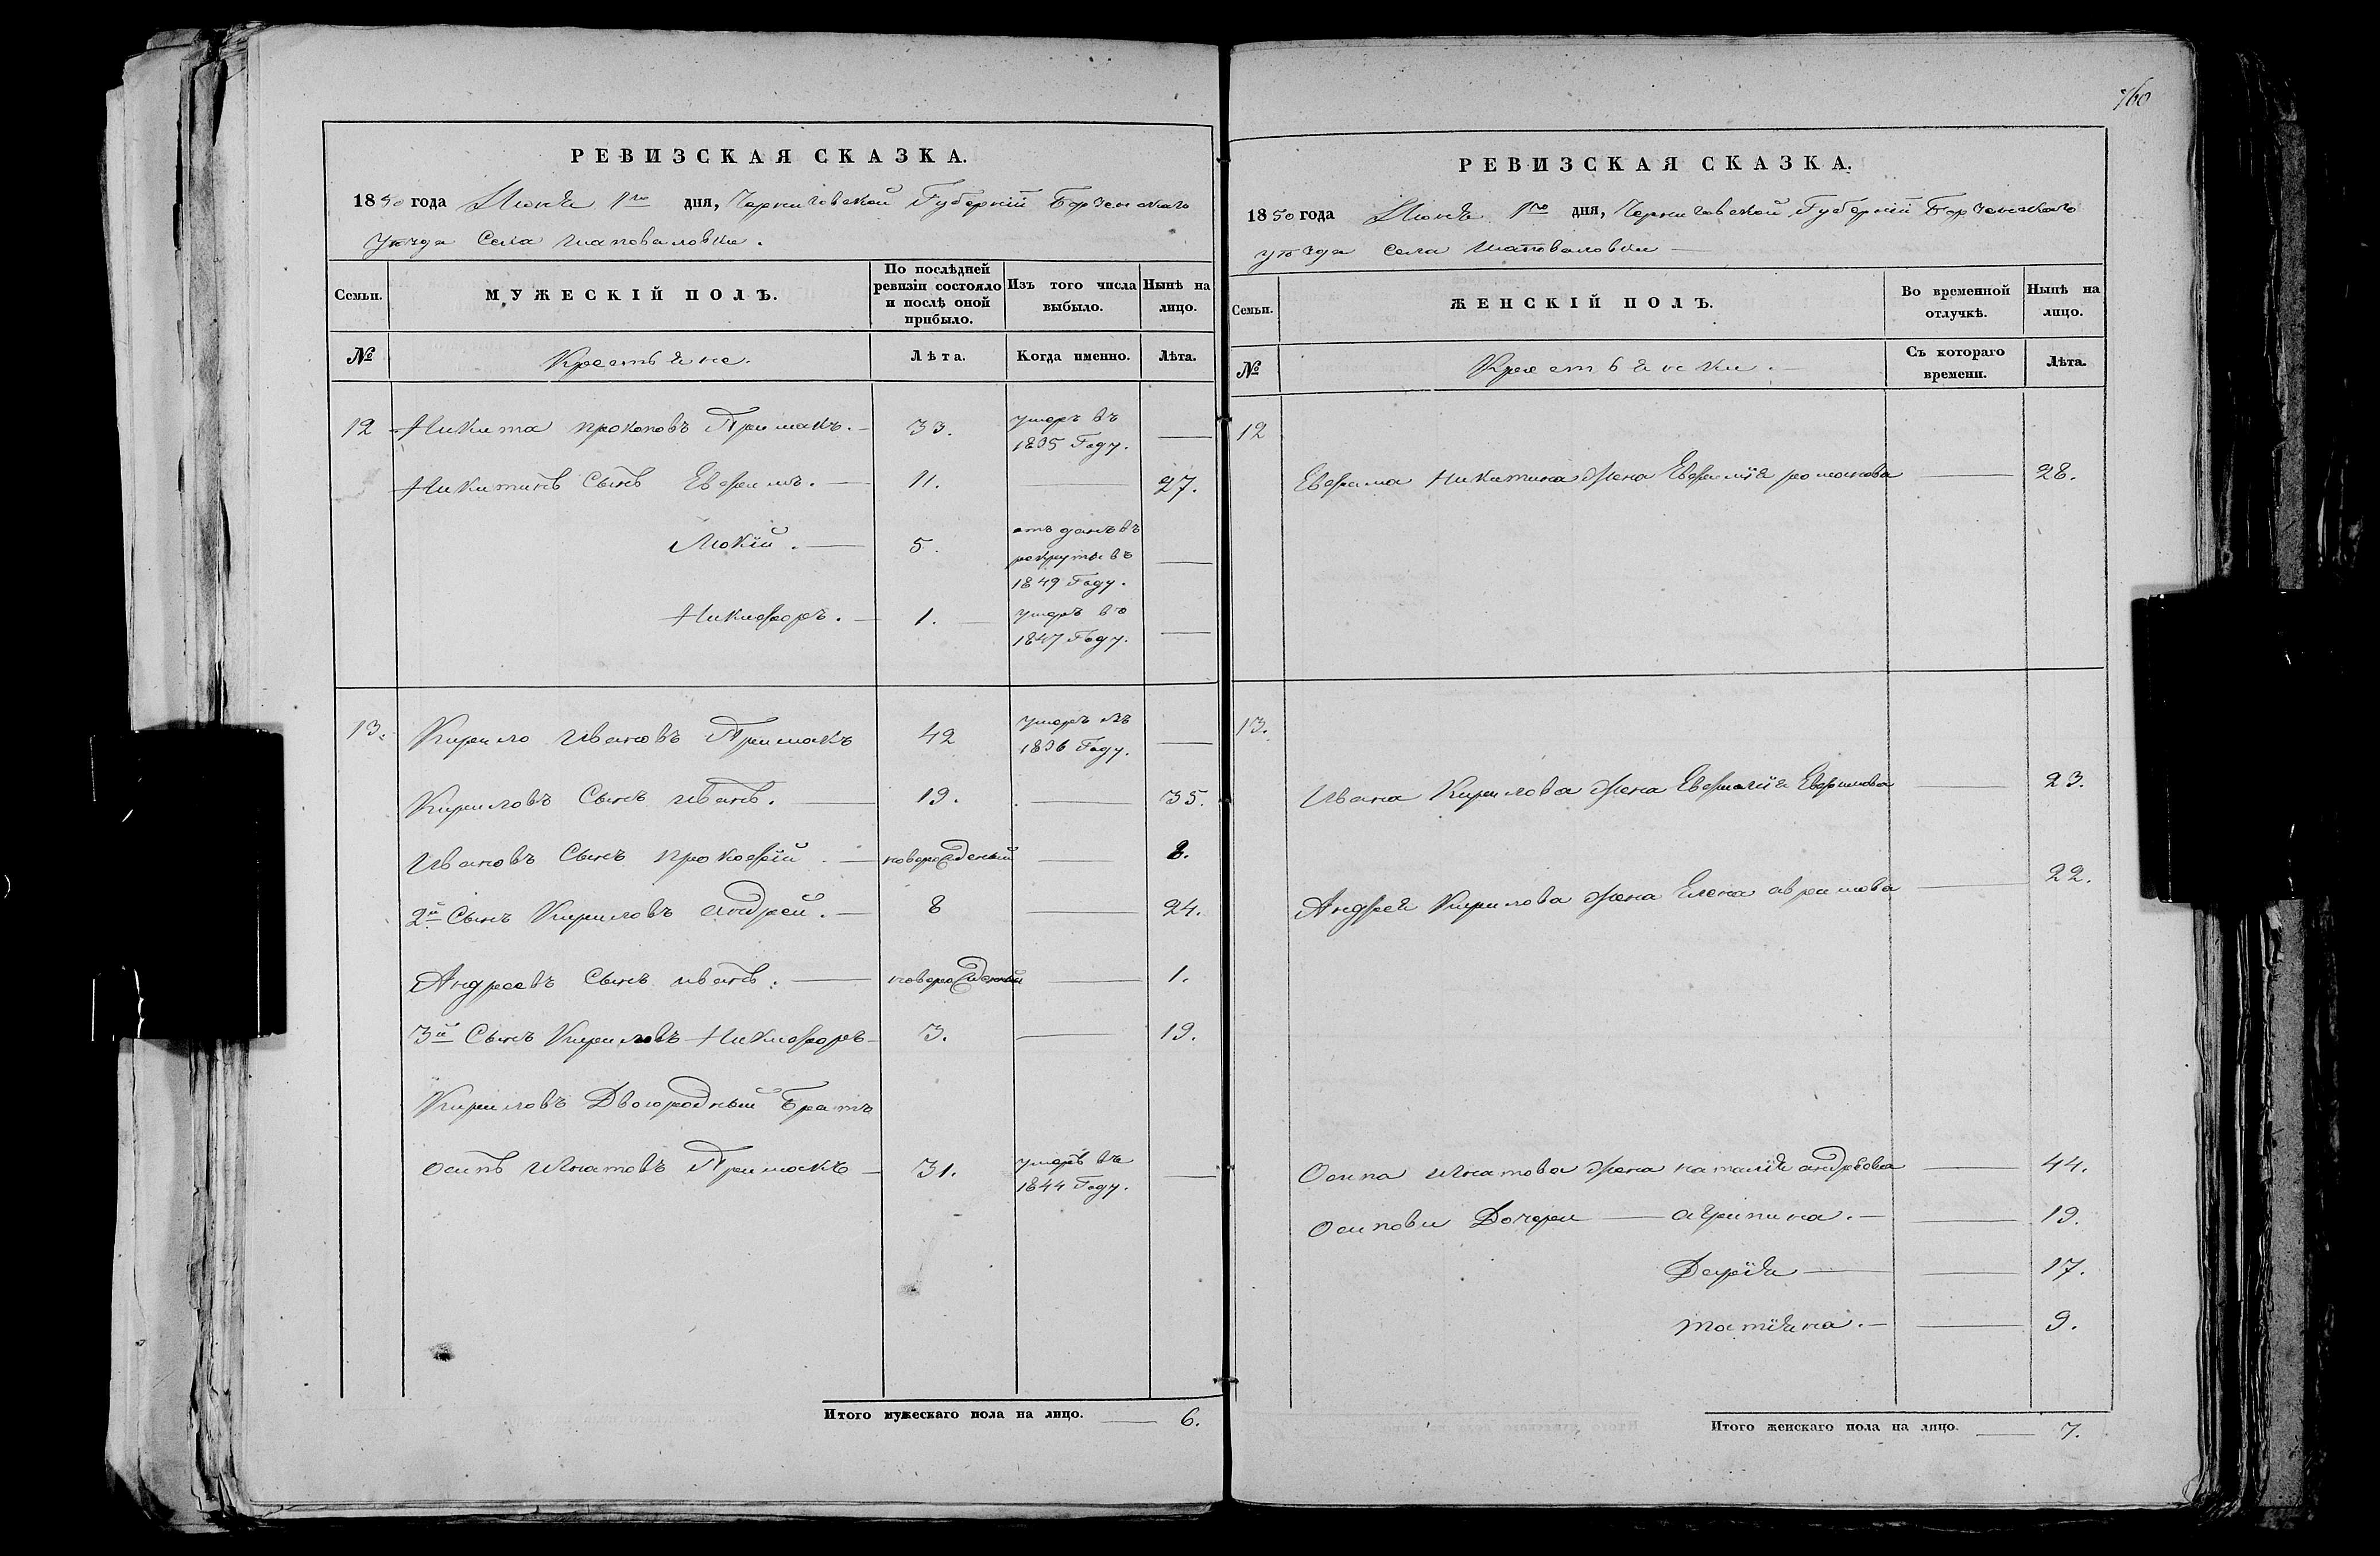 РЕВИЗСКАЯ СКАЗКА.
1850 года Июня 1го дня, Черниговской Губерніи Борзенскаго
уѣзда Села Шаповаловки.
Семьи.
МУЖЕСКІЙ ПОЛЪ.
По послѣдней
ревизіи состояло
и послѣ оной
прибыло.
Изъ того числа
выбыло.
Нынѣ на
лицо.
№
Крестьяне.
Лѣта.
Когда именно.
Лѣта.
12 Никита прокоповъ Примакъ. 33. умеръ въ
1835 Году. —
Никитинъ Сынъ Евфимъ. — 11. 27.
Мокій. — 5. отъданъ въ
рекруты въ
1849 Году. —
Никифоръ. — 1. — умеръ въ
1847 Году. —
13. Кирило Ивановъ Примакъ 42 умеръ въ
1836 Году. —
Кириловъ Сынъ иванъ. — 19. — 35.
Ивановъ Сынъ прокофій. — новорожденый — 8.
2й Сынъ Кириловъ андрей. — 8 — 24.
Андреевъ Сынъ иванъ. — новорожденый — 1.
3й Сынъ Кириловъ Никифоръ — 3. — 19.
Кириловъ Двоюродный Братъ
Осипъ Игнатовъ Примакъ — 31. умеръ въ
1844 Году. —
Итого мужескаго пола на лицо. — 6.
760
РЕВИЗСКАЯ СКАЗКА.
1850 года Июня 1го дня, Черниговской Губерніи Борзенскаго
уѣзда села Шаповаловки —
Семьи.
ЖЕНСКІЙ ПОЛЪ.
Во временной
отлучкѣ.
Нынѣ на
лицо.
№
Крестьянки. —
Съ котораго
времени.
Лѣта.
12
Евфима Никитина жена Евфимія романова — 28.
13.
Ивана Кирилова жена Евфимія Евфимова — 23.
Андрея Кирилова жена Елена — 22.
Осипа Игнатова жена наталія андрѣева — 44.
Осипови Дочери — агрипина. — — 19.
Дарія — — 17.
татіяна. — — 9.
Итого женскаго пола на лицо. — 7.